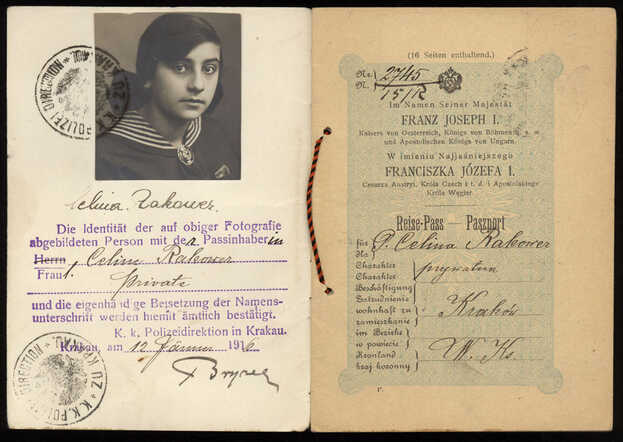 K. K. POLIZEI DIREKTION
ZU KRAKAU
Celina Rakower
Die Identität der auf obiger Fotografie
abgebildeten Person mit der Passinhaberin
Herrn
Frau Celine Rakower
Private
und die eigenhändige Beisetzung der Namens-
unterschrift werden hiemit ämtlich bestätigt.
K. k. Polizeidirektion in Krakau.
Krakau, am 12 Jänner 1916
K. K. POLIZEI DIREKTION
ZU KRAKAU
(16 Seiten enthaltend.)
Nr. 2745
N. 15/R
Im Namen Seiner Majestät
FRANZ JOSEPH I.
Kaisers von Oesterreich, Königs von Böhmen u. s. w.
und Apostolischen Königs von Ungarn.
W imieniu Najjaśniejszego
FRANCISZKA JÓZEFA I.
Cesarza Austryi, Króla Czech i t. d. i Apostolskiego
Króla Węgier.
Reise-Pass — Paszport
für P. Celina Rakower
dla
Charakter prywatna
Charakter
Beschäftigung
Zatrudnienie
wohnhaft zu Kraków
zamieszkanie
im Bezirke
w powiecie
Kronland W. Ks.
kraj koronny